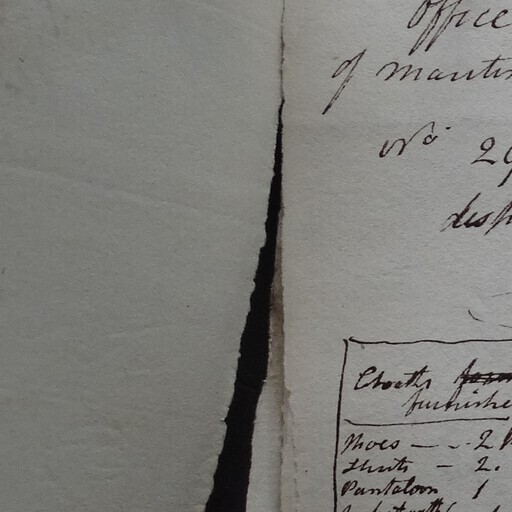 Office
of mariti
No. 29
desp
Cloaths
furnishe
Shoes — - 2
Shirts — 2.
Pantaloon 1